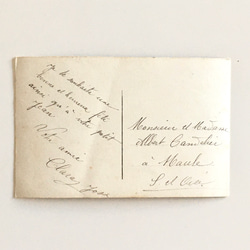 Je te souhaite une
bonne et heureuse fête
ainsi qu'à votre petit
Jean
Votre amie
Clara
Monsieur et Madame
Albert
à Maule
S. et Oise